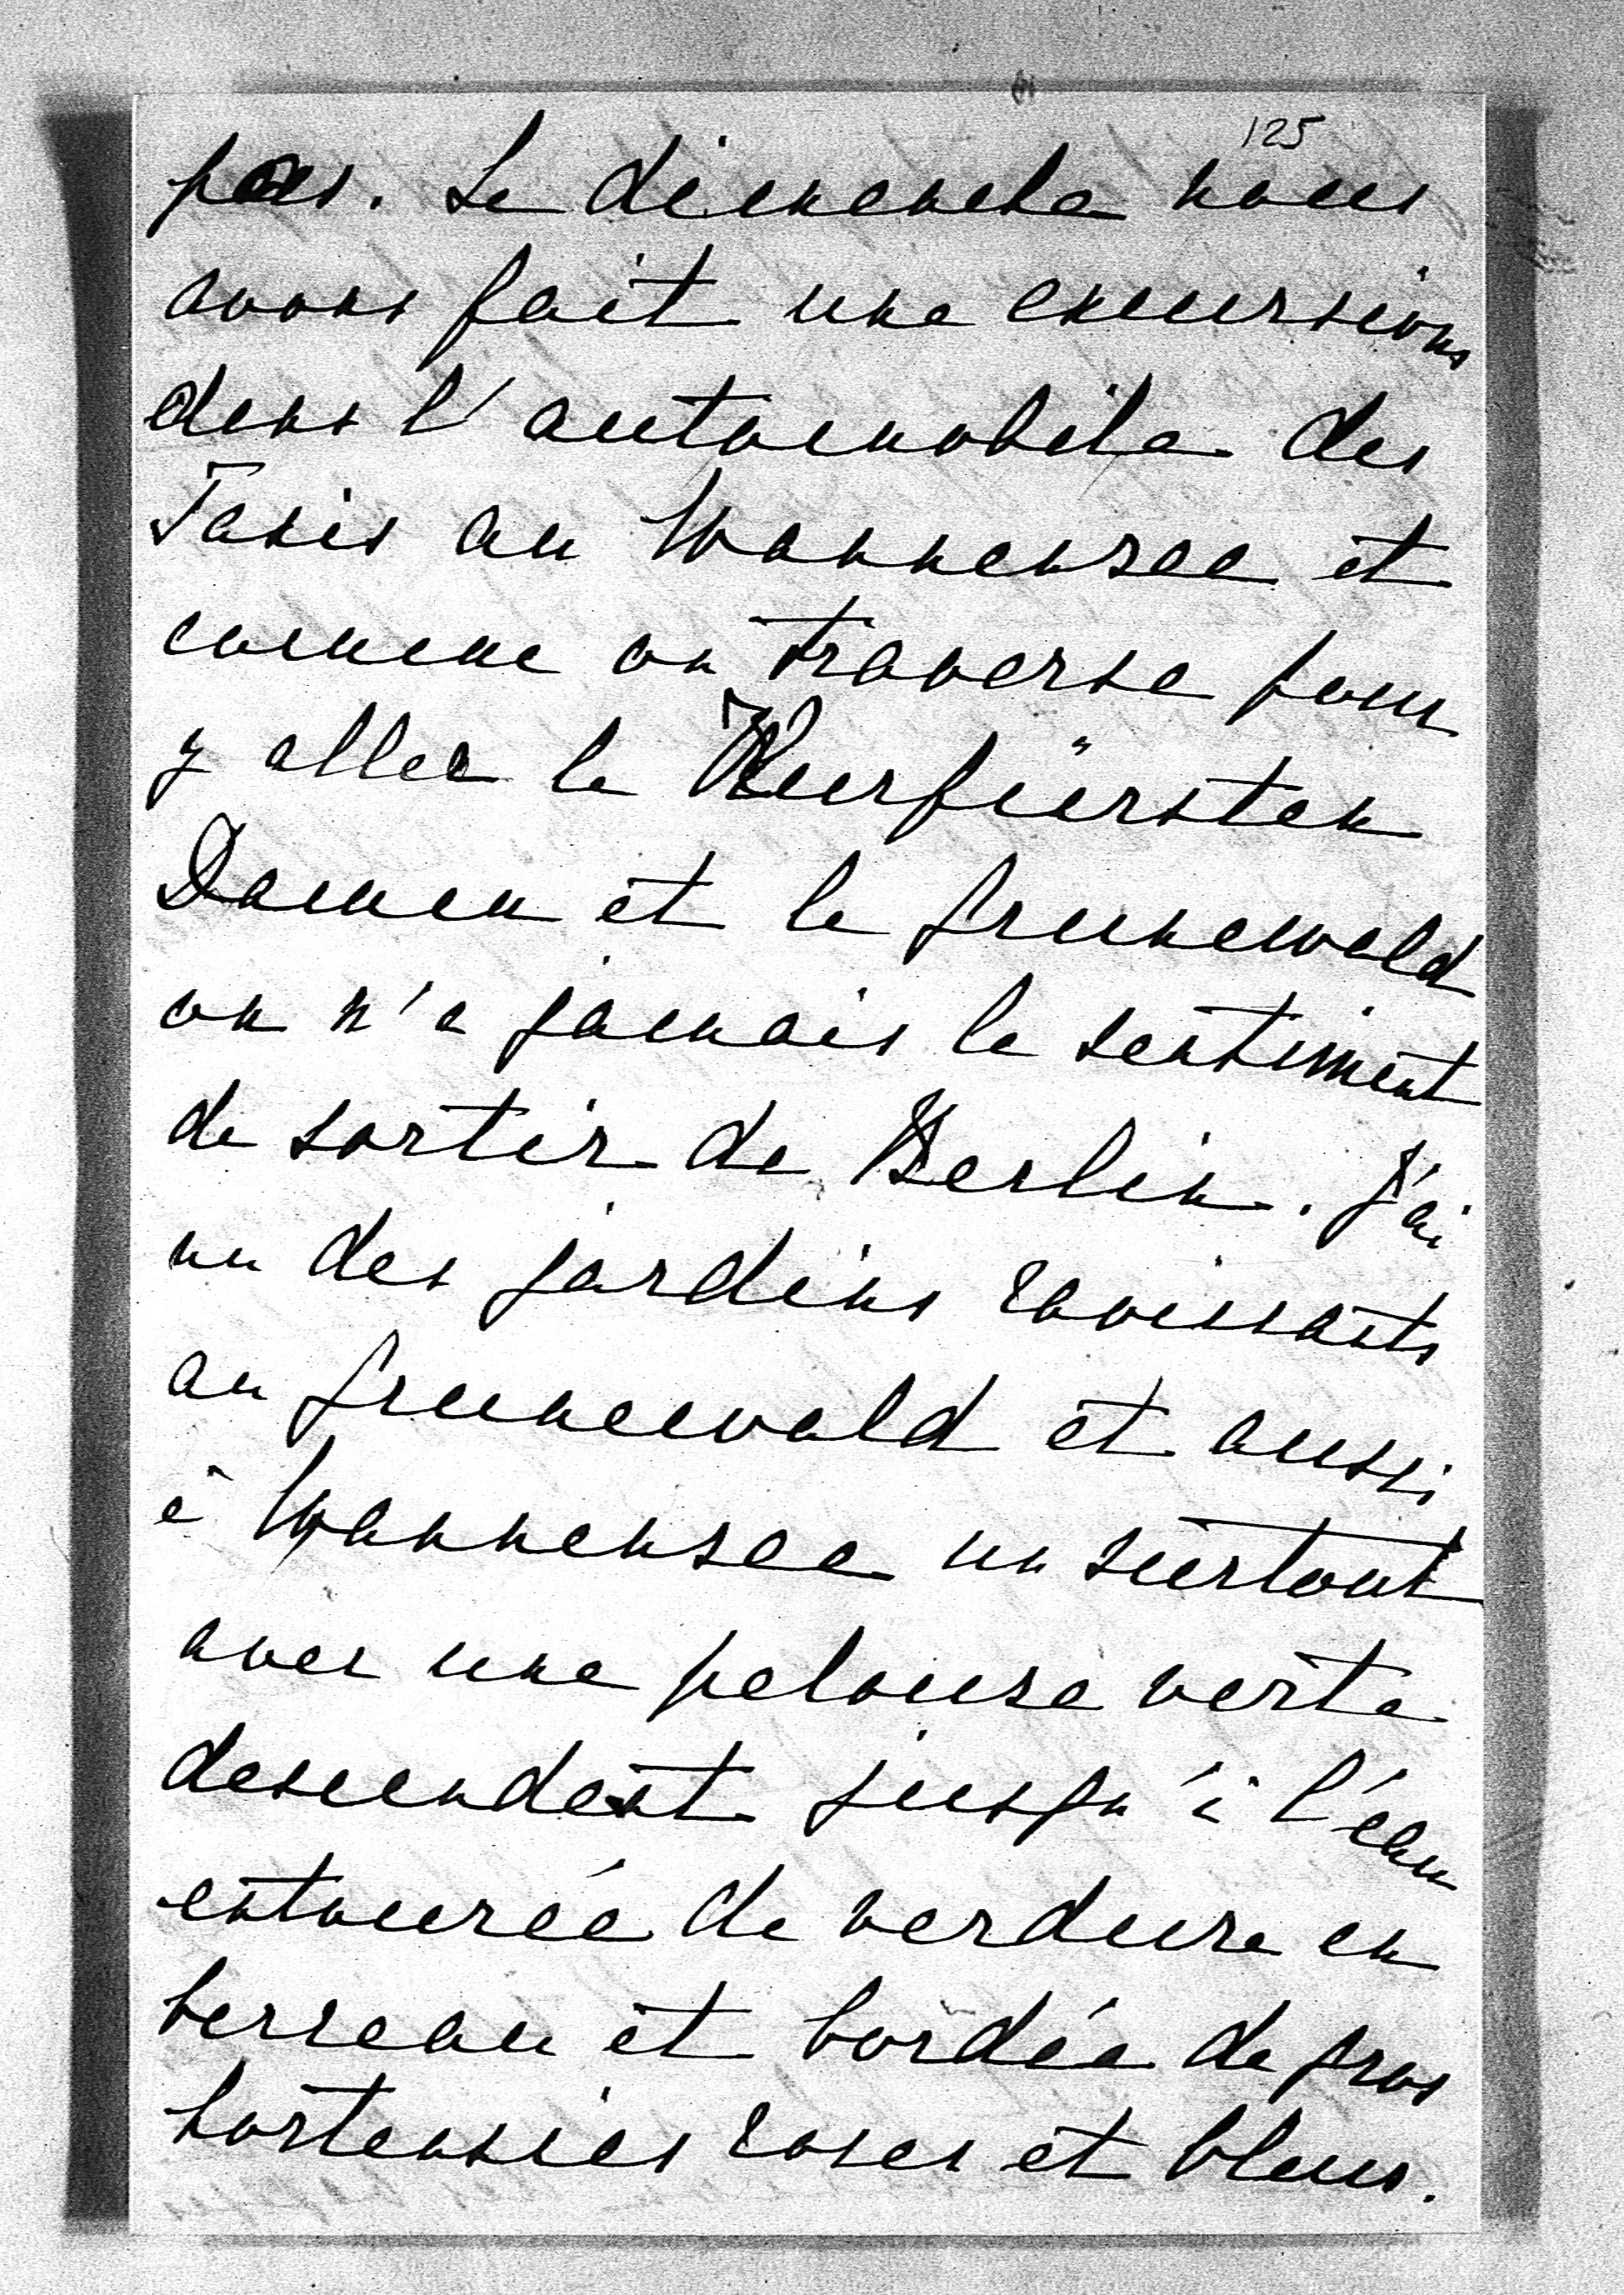 125
pas. Le dimanche nous
avons fait une excursion
dans l'automobile des
Taxis au Wannensee et
comme on traverse pour
y aller le Kurfürsten
Damm et le Grunewald
on n'a jamais le sentiment
de sortir de Berlin. J'ai
vu des jardins ravissants
au Grunewald et aussi
à Wannensee un surtout
avec une pelouse verte
descendant jusqu'à l'eau
entourée de verdure en
berceau et bordée de gros
hortensias roses et bleus.